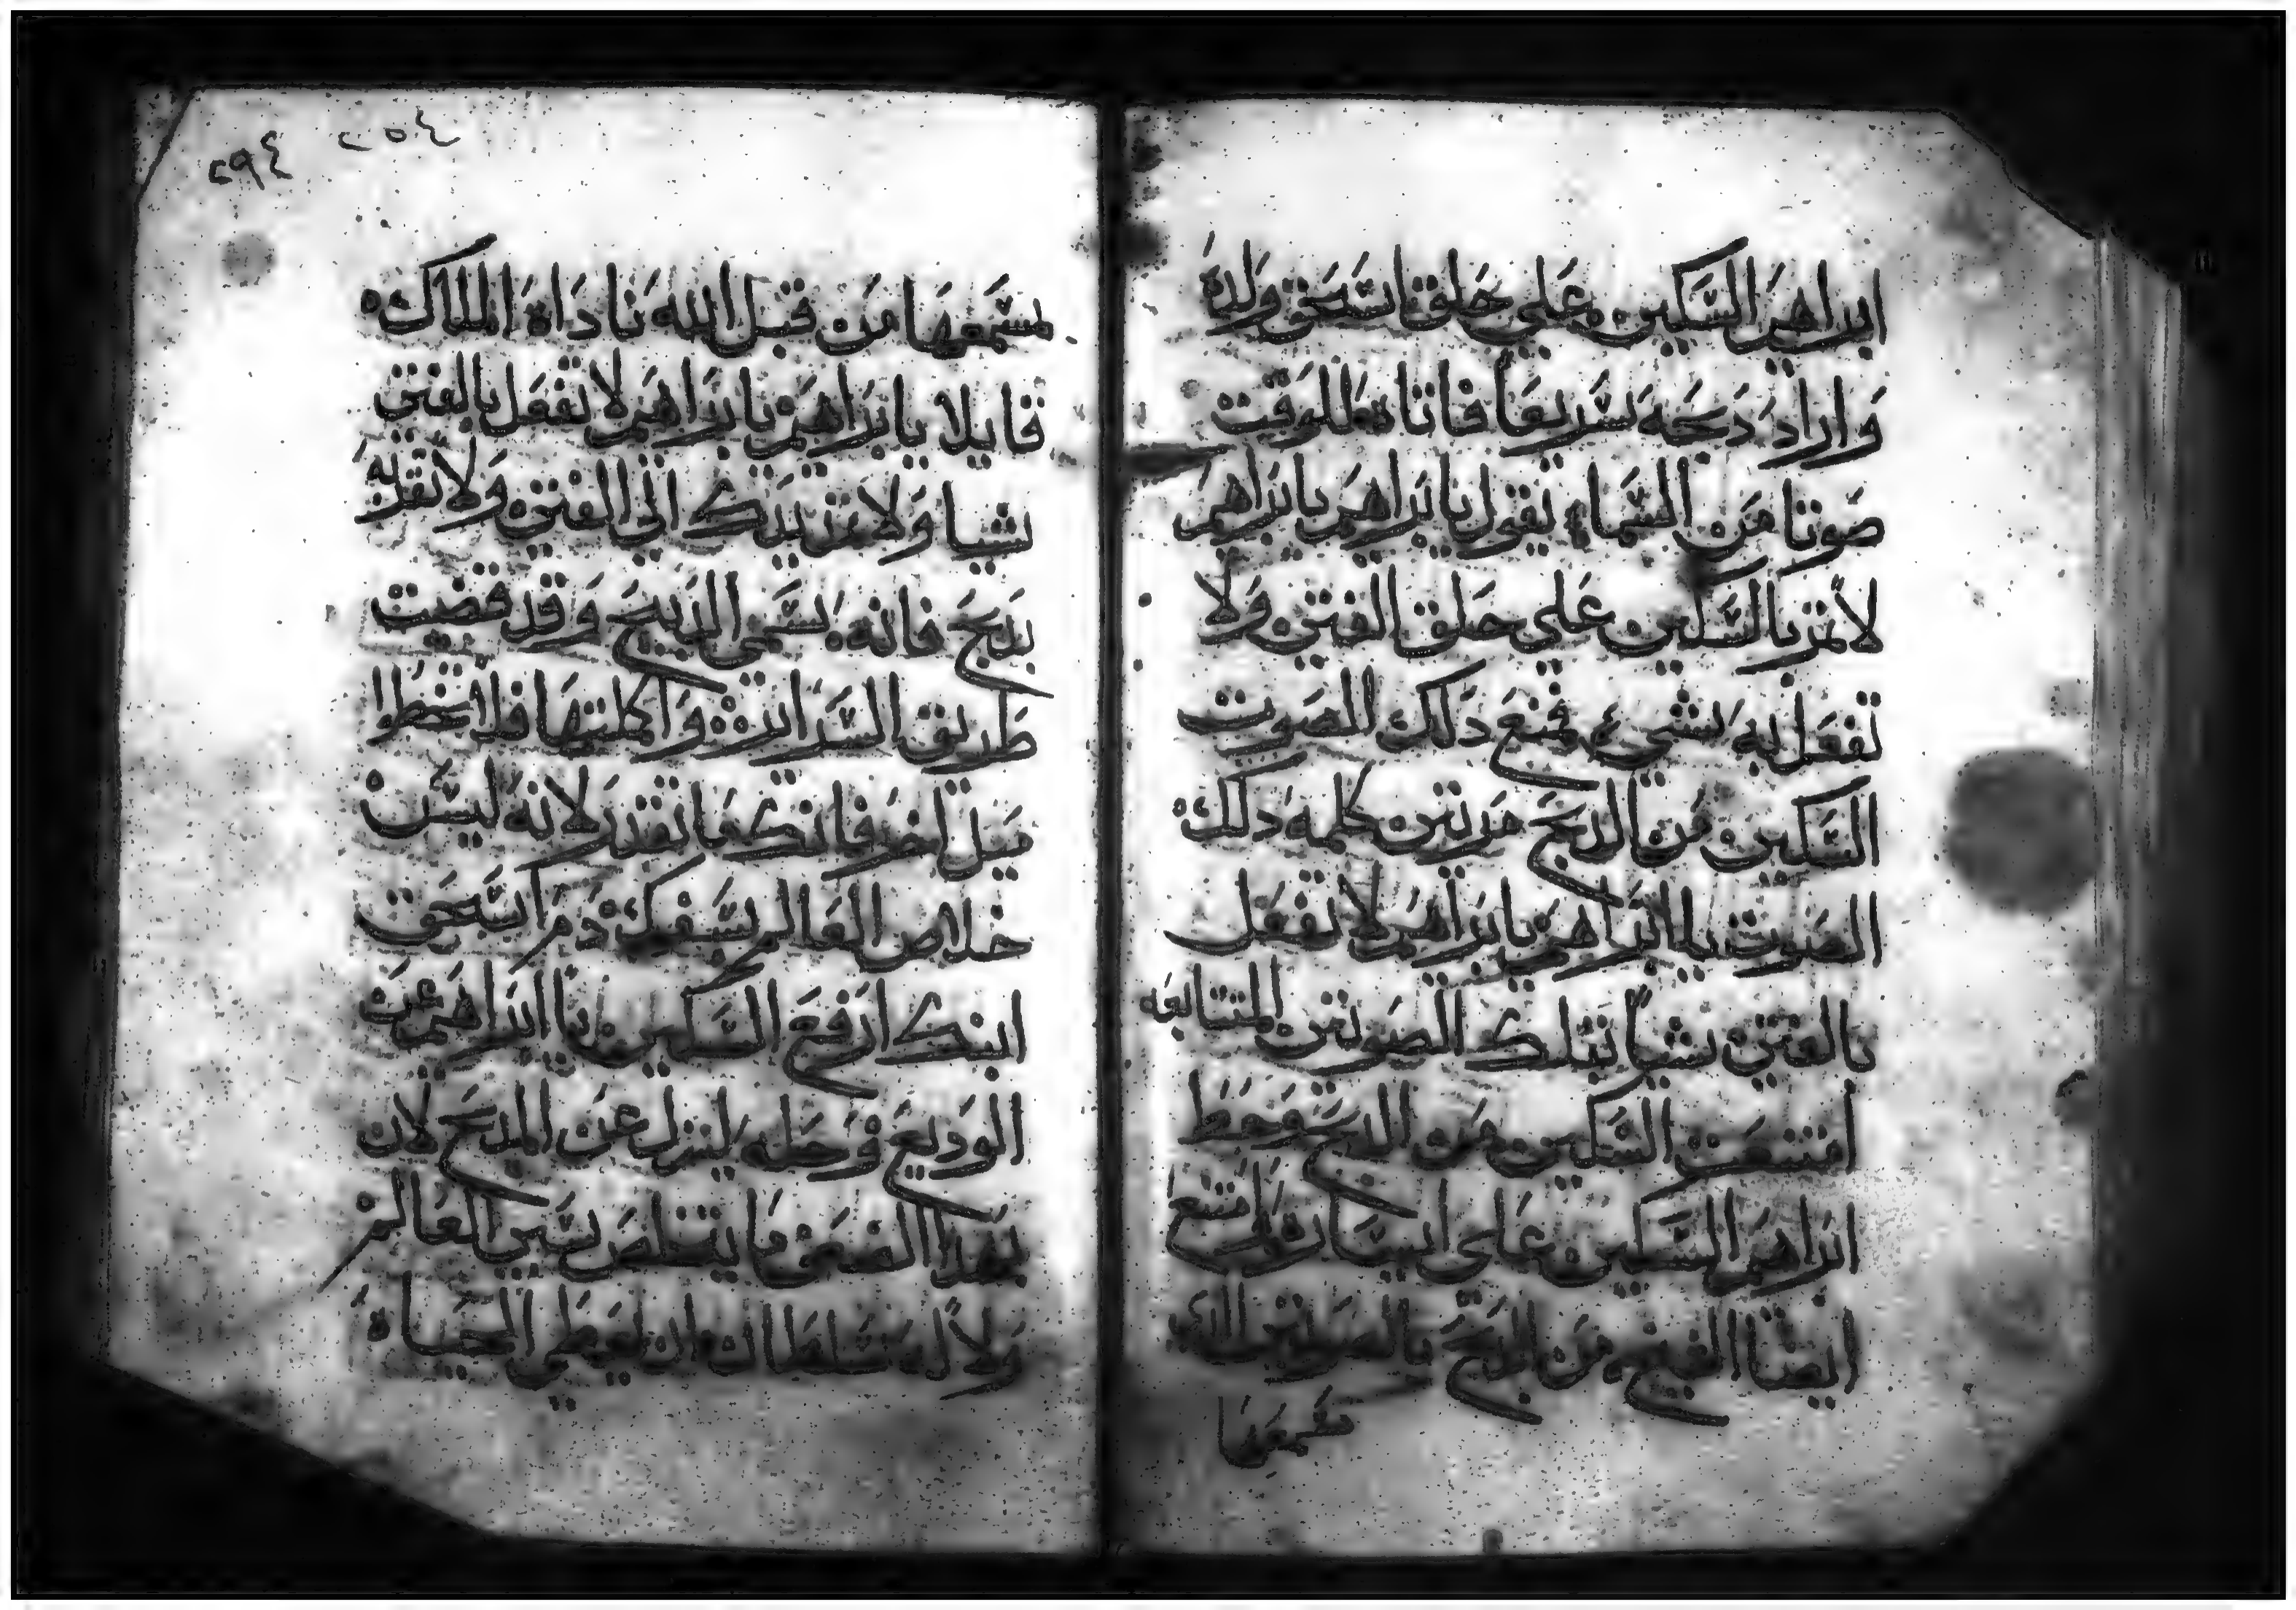 ابراهيم السكين على حلق اسحق ولده
واراد دبحه سريعا فاتا للوقت
صوتا من السما يقول يا براهيم يا براهيم
لا تمر بالسكين على حلق الفتى ولا
تفعل به بشي فمنع دلك الصوت
السكين من الدبح مرتين كلمه دلك
الصوت يا ابراهيم يا براهيم لا تفعل
بالفتى شيا بتلك الصوتين المتتابعه
امتنعت السكين من الدبح وحط
ابراهيم السكين على اسحاق وامتنع
ايضا من الدبح بالصوتين الدي
سمعها من قبل الله ناداه الملاك
قايلا يا براهيم يا براهيم لا تفعل بالفتى
شيا ولا تمر يدك الى الفتى ولا تقربه
بدبح فانه يسمى الدبيح وقد قضيت
طريق السراير واكملتها فلا تخطوا
ميل اخر فانك ما تقدر لانه ليس
خلاص العالم بسفك دم اسحق
ابنك ارفع السكين يا ابراهيم عن
الوديع وحله لينزل عن المدبح لان
بهدا الفتى ما يتخلص سبي العالم
ولا له سلطان ان يعطي الحياه